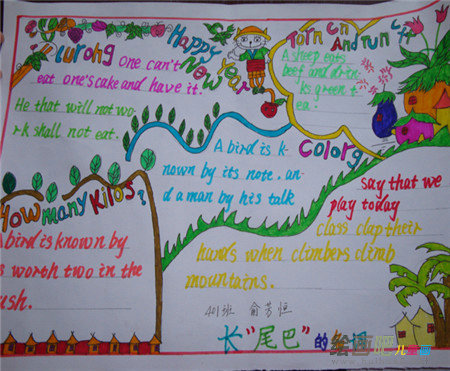 lurong
one can't
eat one's cake and have it.
He that will not wo-
rk shall not eat.
Happy
New Year
Torn on
And run off
A sheep eats
beef and drin-
ks green t-
ea.
A bird is k-
nown by its note. an-
d a man by his talk
Color
say that we
play today
class clap their
hands when climbers climb
mountains.
How many kilos?
A bird is known by
s worth two in the
ush.
401班 俞芳恒
长"尾巴"的